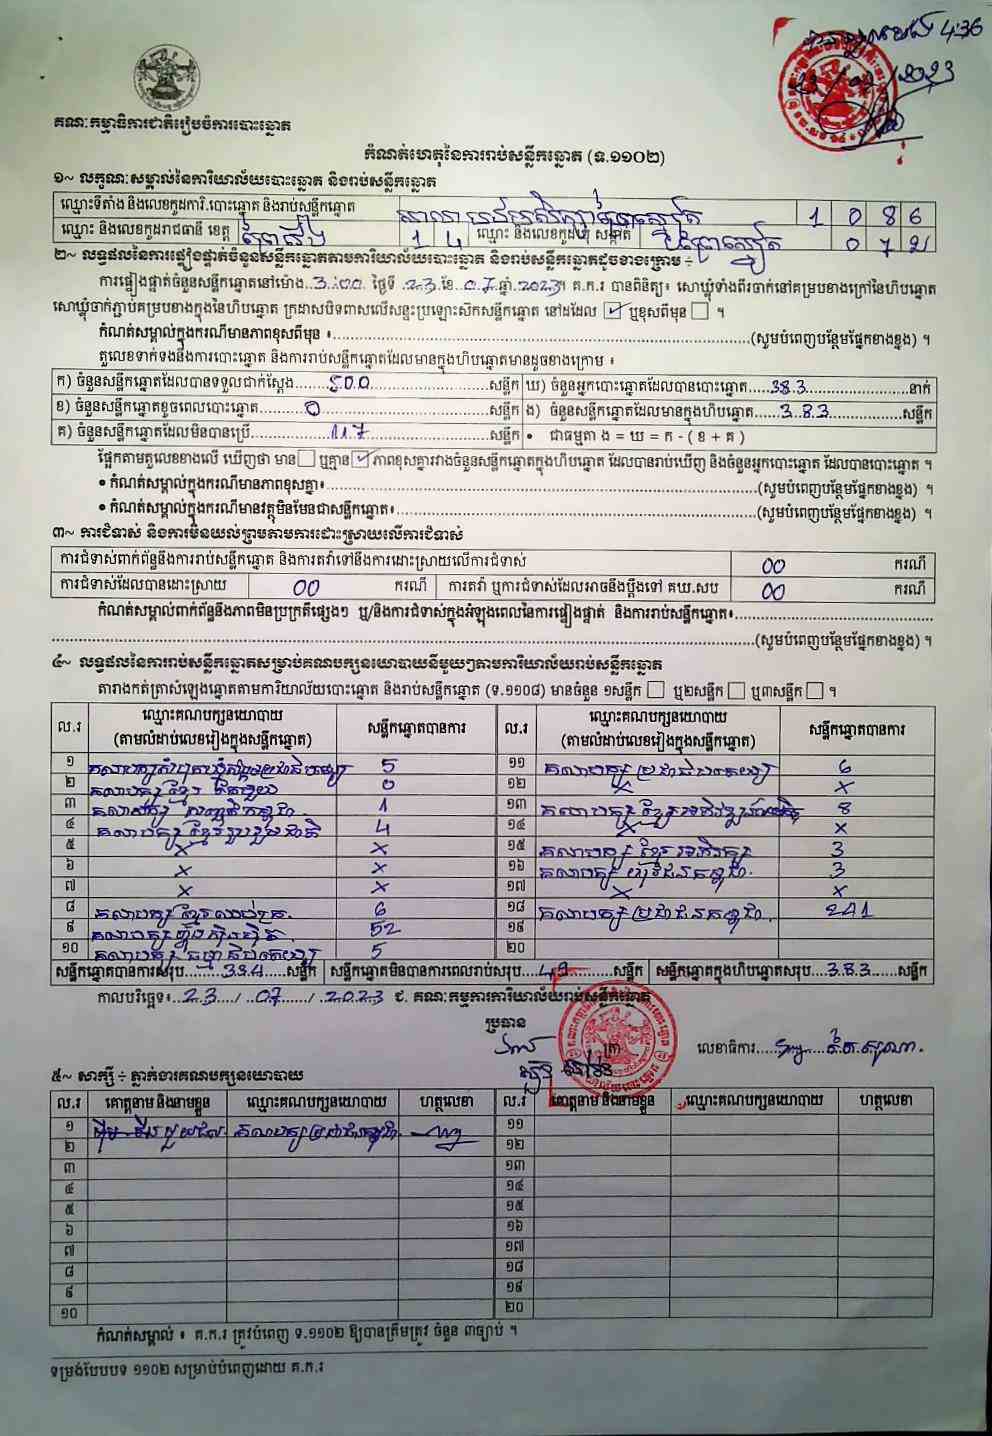 436
23/07/2023
គណៈកម្មាធិការជាតិរៀបចំការបោះឆ្នោត
កំណត់ហេតុនៃការរាប់សន្លឹកឆ្នោត (ទ.១១០២)
១~ លក្ខណៈសម្គាល់នៃការិយាល័យបោះឆ្នោត និងរាប់សន្លឹកឆ្នោត
ឈ្មោះទីតាំង និងលេខកូដការិ.បោះឆ្នោត និងរាប់សន្លឹកឆ្នោត 1 0 8 6
ឈ្មោះ និងលេខកូដរាជធានី ខេត្ត ព្រៃវែង 1 4 ឈ្មោះ និងលេខកូដឃុំ សង្កាត់ 0 7 2
២~ លទ្ធផលនៃការផ្ទៀងផ្ទាត់ចំនួនសន្លឹកឆ្នោតតាមការិយាល័យបោះឆ្នោត និងរាប់សន្លឹកឆ្នោតដូចខាងក្រោម ÷
ការផ្ទៀងផ្ទាត់ចំនួនសន្លឹកឆ្នោតនៅម៉ោង..3:00. ថ្ងៃទី .23.ខែ.07.ឆ្នាំ.2023។ គ.ក.រ បានពិនិត្យ៖ សោឃ្លុំទាំងពីរចាក់នៅគម្របខាងក្រៅនៃហិបឆ្នោត
សោឃ្លុំចាក់ភ្ជាប់គម្របខាងក្នុងនៃហិបឆ្នោត ក្រដាសបិទពាសលើសន្ទះប្រឡោះសិកសន្លឹកឆ្នោត នៅដដែល ☑ ឬខុសពីមុន ☐ ។
កំណត់សម្គាល់ក្នុងករណីមានភាពខុសពីមុន ៖ (សូមបំពេញបន្ថែមផ្នែកខាងខ្នង) ។
តួលេខទាក់ទងនឹងការបោះឆ្នោត និងការរាប់សន្លឹកឆ្នោតដែលមានក្នុងហិបឆ្នោតមានដូចខាងក្រោម ៖
ក) ចំនួនសន្លឹកឆ្នោតដែលបានទទួលជាក់ស្តែង 500 សន្លឹក ឃ) ចំនួនអ្នកបោះឆ្នោតដែលបានបោះឆ្នោត 383 នាក់
ខ) ចំនួនសន្លឹកឆ្នោតខូចពេលបោះឆ្នោត 0 សន្លឹក ង) ចំនួនសន្លឹកឆ្នោតដែលមានក្នុងហិបឆ្នោត 383 សន្លឹក
គ) ចំនួនសន្លឹកឆ្នោតដែលមិនបានប្រើ 117 សន្លឹក • ជាធម្មតា ង = ឃ = ក - ( ខ + គ )
ផ្អែកតាមតួលេខខាងលើ ឃើញថា មាន ☐ ឬគ្មាន ☑ ភាពខុសគ្នារវាងចំនួនសន្លឹកឆ្នោតក្នុងហិបឆ្នោត ដែលបានរាប់ឃើញ និងចំនួនអ្នកបោះឆ្នោត ដែលបានបោះឆ្នោត ។
• កំណត់សម្គាល់ក្នុងករណីមានភាពខុសគ្នា៖ (សូមបំពេញបន្ថែមផ្នែកខាងខ្នង) ។
• កំណត់សម្គាល់ក្នុងករណីមានវត្ថុមិនមែនជាសន្លឹកឆ្នោត៖ (សូមបំពេញបន្ថែមផ្នែកខាងខ្នង) ។
៣~ ការជំទាស់ និងការមិនយល់ព្រមតាមការដោះស្រាយលើការជំទាស់
ការជំទាស់ពាក់ព័ន្ធនឹងការរាប់សន្លឹកឆ្នោត និងការតវ៉ាទៅនឹងការដោះស្រាយលើការជំទាស់ 00 ករណី
ការជំទាស់ដែលបានដោះស្រាយ 00 ករណី ការតវ៉ា ឬការជំទាស់ដែលអាចនឹងប្តឹងទៅ គឃ.សប 00 ករណី
កំណត់សម្គាល់ពាក់ព័ន្ធនឹងភាពមិនប្រក្រតីផ្សេងៗ ឬ/និងការជំទាស់ក្នុងអំឡុងពេលនៃការផ្ទៀងផ្ទាត់ និងការរាប់សន្លឹកឆ្នោត៖
(សូមបំពេញបន្ថែមផ្នែកខាងខ្នង) ។
៤~ លទ្ធផលនៃការរាប់សន្លឹកឆ្នោតសម្រាប់គណបក្សនយោបាយនីមួយៗតាមការិយាល័យរាប់សន្លឹកឆ្នោត
តារាងកត់ត្រាសំឡេងឆ្នោតតាមការិយាល័យបោះឆ្នោត និងរាប់សន្លឹកឆ្នោត (ទ.១១០៨) មានចំនួន ១សន្លឹក ☐ ឬ២សន្លឹក ☐ ឬ៣សន្លឹក ☐ ។
ល.រ ឈ្មោះគណបក្សនយោបាយ (តាមលំដាប់លេខរៀងក្នុងសន្លឹកឆ្នោត) សន្លឹកឆ្នោតបានការ ល.រ ឈ្មោះគណបក្សនយោបាយ (តាមលំដាប់លេខរៀងក្នុងសន្លឹកឆ្នោត) សន្លឹកឆ្នោតបានការ
១ 5 ១១ គណបក្ស ប្រជាធិបតេយ្យ 6
២ គណបក្ស ខ្មែរ តែមួយ 0 ១២ × ×
៣ 1 ១៣ 8
៤ គណបក្ស ខ្មែររួបរួមជាតិ 4 ១៤ × ×
៥ × × ១៥ គណបក្ស ខ្មែរ អភិរក្ស 3
៦ × × ១៦ 3
៧ × × ១៧ × ×
៨ 6 ១៨ គណបក្ស ប្រជាជនកម្ពុជា 241
៩ គណបក្ស ហ្វ៊ុនស៊ិនប៉ិច 52 ១៩
១០ គណបក្ស ធម្មាធិបតេយ្យ 5 ២០
សន្លឹកឆ្នោតបានការសរុប 334 សន្លឹក សន្លឹកឆ្នោតមិនបានការពេលរាប់សរុប 49 សន្លឹក សន្លឹកឆ្នោតក្នុងហិបឆ្នោតសរុប 383 សន្លឹក
កាលបរិច្ឆេទ៖ 23 / 07 / 2023 ជ. គណៈកម្មការការិយាល័យរាប់សន្លឹកឆ្នោត
ប្រធាន
លេខាធិការ
៥~ សាក្សី ÷ ភ្នាក់ងារគណបក្សនយោបាយ
ល.រ គោត្តនាម និងនាមខ្លួន ឈ្មោះគណបក្សនយោបាយ ហត្ថលេខា ល.រ គោត្តនាម និងនាមខ្លួន ឈ្មោះគណបក្សនយោបាយ ហត្ថលេខា
១ គណបក្ស ប្រជាជនកម្ពុជា ១១
២ ១២
៣ ១៣
៤ ១៤
៥ ១៥
៦ ១៦
៧ ១៧
៨ ១៨
៩ ១៩
១០ ២០
កំណត់សម្គាល់ ៖ គ.ក.រ ត្រូវបំពេញ ទ.១១០២ ឱ្យបានត្រឹមត្រូវ ចំនួន ៣ច្បាប់ ។
ទម្រង់បែបបទ ១១០២ សម្រាប់បំពេញដោយ គ.ក.រ